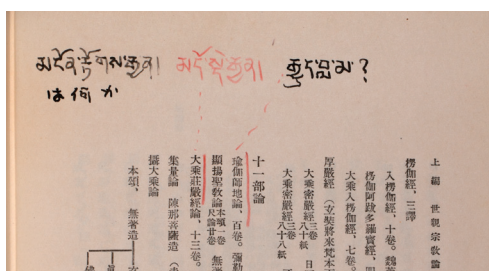 མངོན་རྟོགས་རྒྱན། མདོ་སྡེ་རྒྱན། རྒྱུད་བླ་མ་?
は何か
上編 世親宗敎論
楞伽經、三譯
入楞伽經、十卷。魏
楞伽阿跋多羅寶經、四
大乘入楞伽經、七卷。
厚嚴經(玄奘將來梵本
大乘密嚴經 三卷 八十紙 日
大乘密嚴經 三卷 八十八紙
十一部論
瑜伽師地論、百卷。彌勒
顯揚聖敎論 本頌一卷 無著
大乘莊嚴經論、十三卷。
集量論 陳那菩薩造
攝大乘論
本頌、無著造